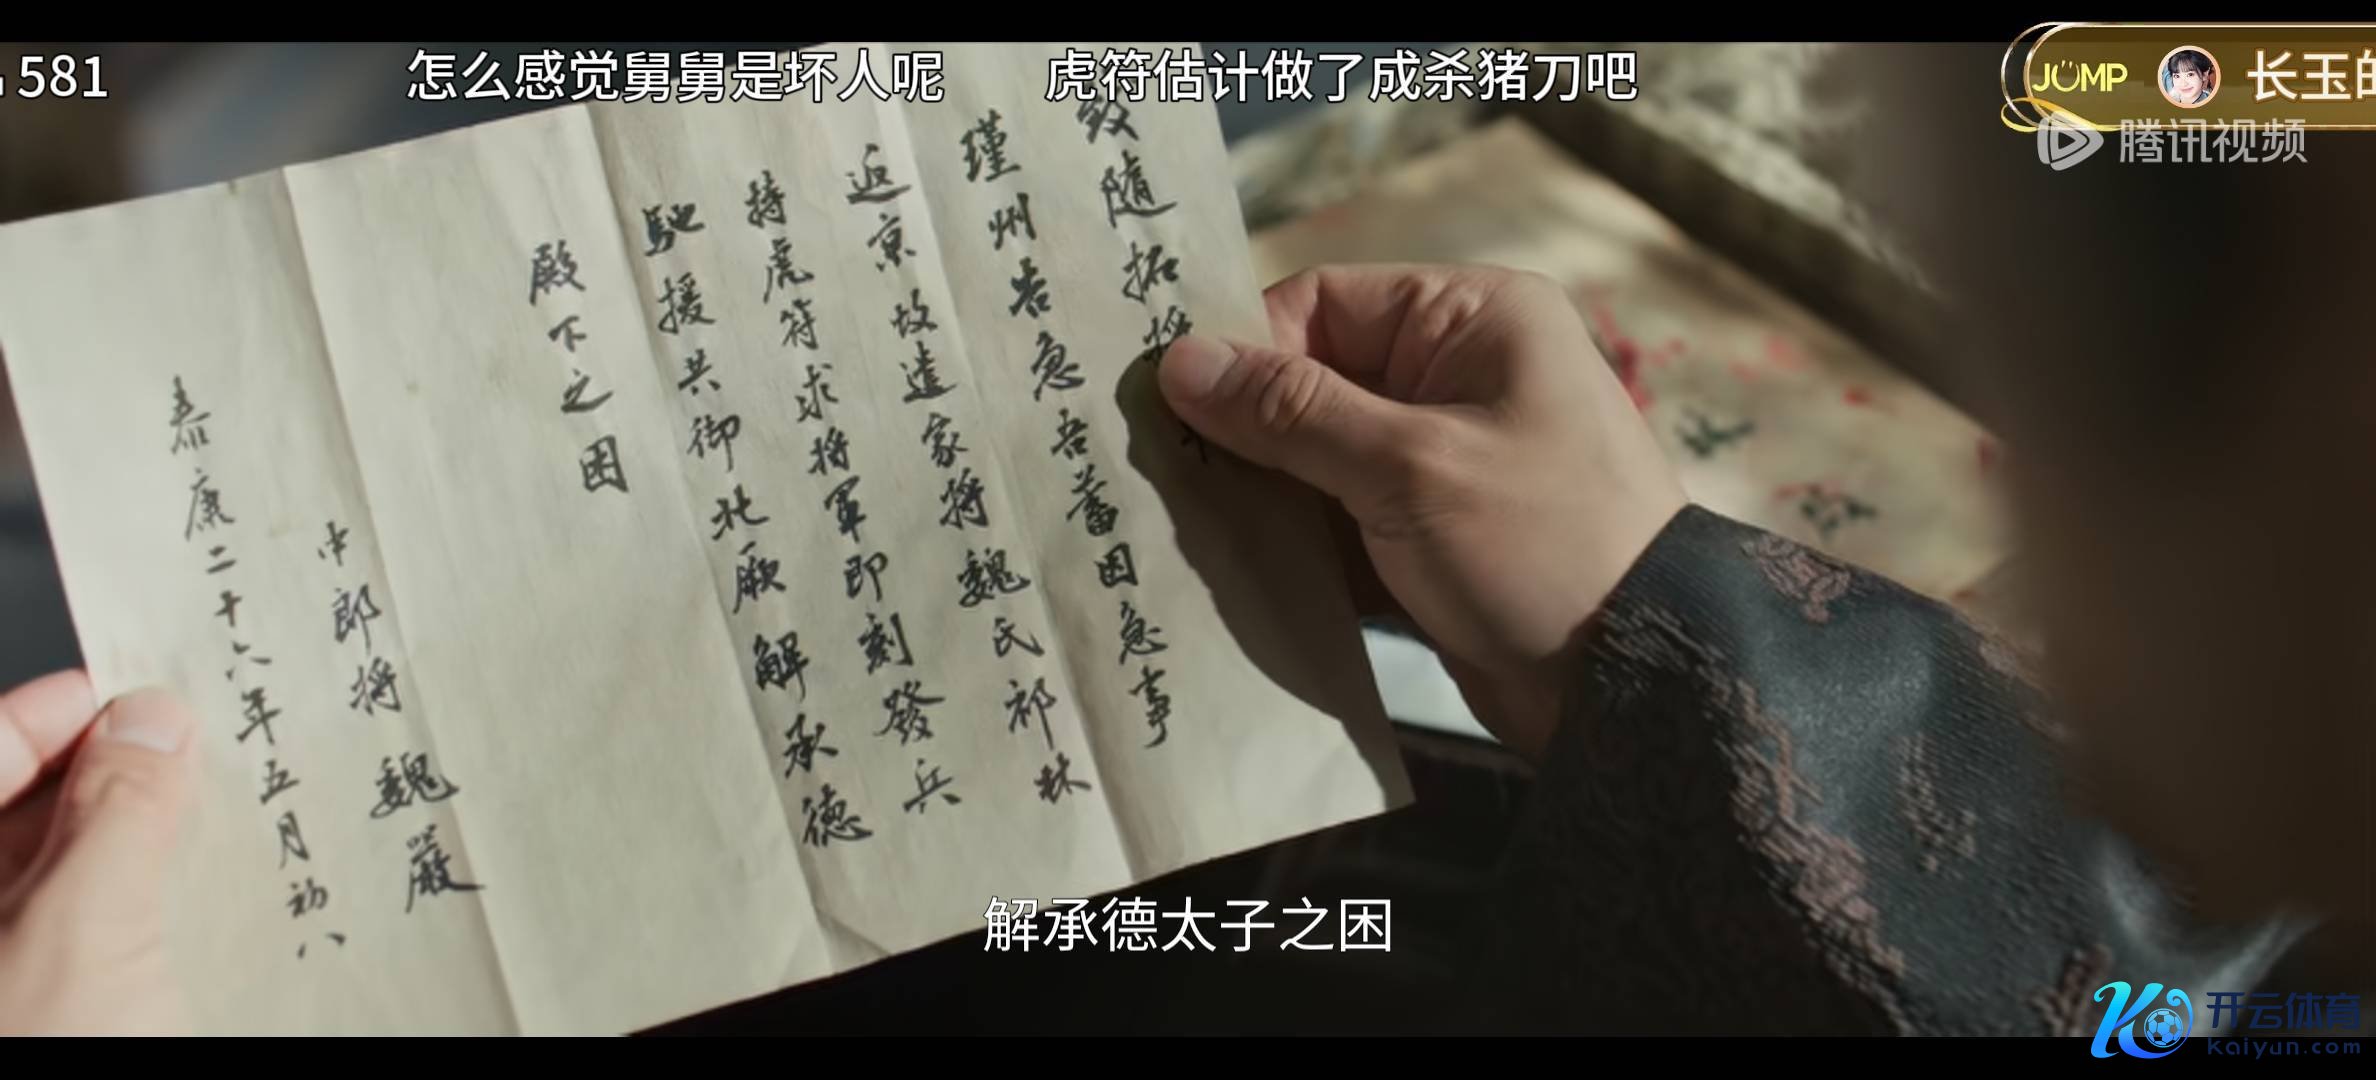 581
怎么感觉舅舅是坏人呢
虎符估计做了成杀猪刀吧
JUMP
长玉的
腾讯视频
致随拓将
瑾州告急吾蓄困急事
返京故遣家將魏氏祁林
持虎符求将軍即刻發兵
馳援共御北厥解承德
殿下之困
中郎将魏嚴
泰康二十六年五月初八
解承德太子之困
开云体育
Kaiyun.com